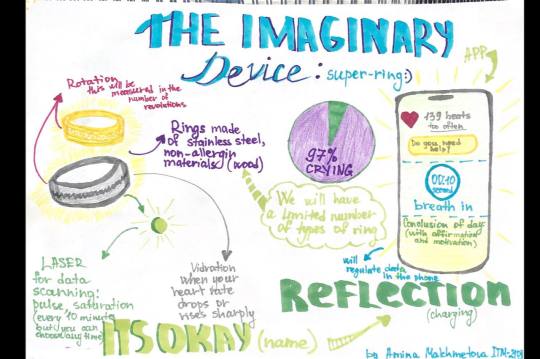 THE IMAGINARY
Device: super-ring:)
APP
Rotation
this will be
measured in the
number of
revolutions
Rings made
of stainless steel,
non-allergin
materials (wood)
97%
CRYING
139 beats
too often
Do you need
help?
00:10
second
breath in
Conclusion of day:
(with affirmation
and motivation)
We will have
a limited number
of types of ring
will
regulate data
in the phone
LASER
for data
scanning:
pulse, saturation
(every 10 minute
but you can
choose any time)
Vibration
when your
heart rate
drops or
rises sharply
REFLECTION
(charging)
ITS OKAY (name)
by Amina Makhmetova